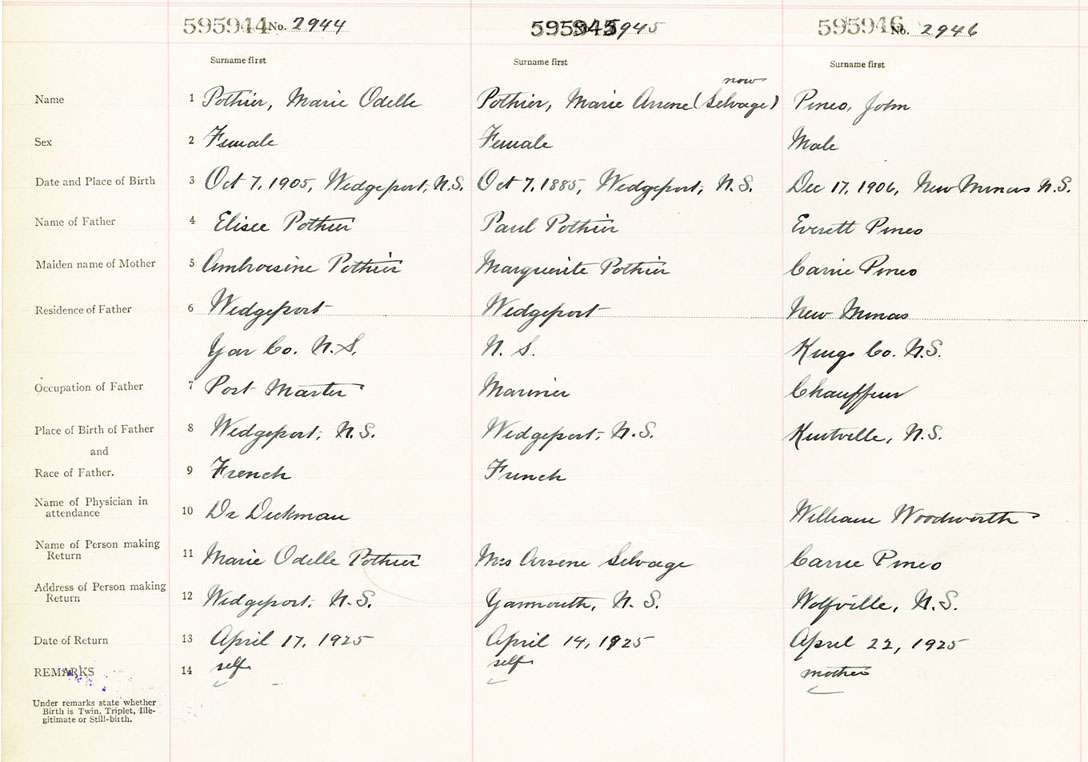 595944 No. 2944 595945 2945 595946 No. 2946
Surname first Surname first Surname first
now
Name 1 Pothier, Marie Odelle Pothier, Marie Arsene (Selvage) Pineo, John
Sex 2 Female Female Male
Date and Place of Birth 3 Oct 7, 1905, Wedgeport, N.S. Oct 7, 1885, Wedgeport, N.S. Dec 17, 1906, New Minas N.S.
Name of Father 4 Elisee Pothier Paul Pothier Everett Pineo
Maiden name of Mother 5 Ambroisine Pothier Marguerite Pothier Carrie Pineo
Residence of Father 6 Wedgeport Wedgeport New Minas
Yar Co. N.S. N.S. Kings Co. N.S.
Occupation of Father 7 Post Master Mariner Chauffeur
Place of Birth of Father 8 Wedgeport, N.S. Wedgeport, N.S. Kentville, N.S.
and
Race of Father. 9 French French
Name of Physician in
attendance 10 Dr William Woodworth
Name of Person making
Return 11 Marie Odelle Pothier Mrs Arsene Selvage Carrie Pineo
Address of Person making
Return 12 Wedgeport, N.S. Yarmouth, N.S. Wolfville, N.S.
Date of Return 13 April 17, 1925 April 14, 1925 April 22, 1925
REMARKS 14 self self mother
Under remarks state whether
Birth is Twin, Triplet, Ille-
gitimate or Still-birth.